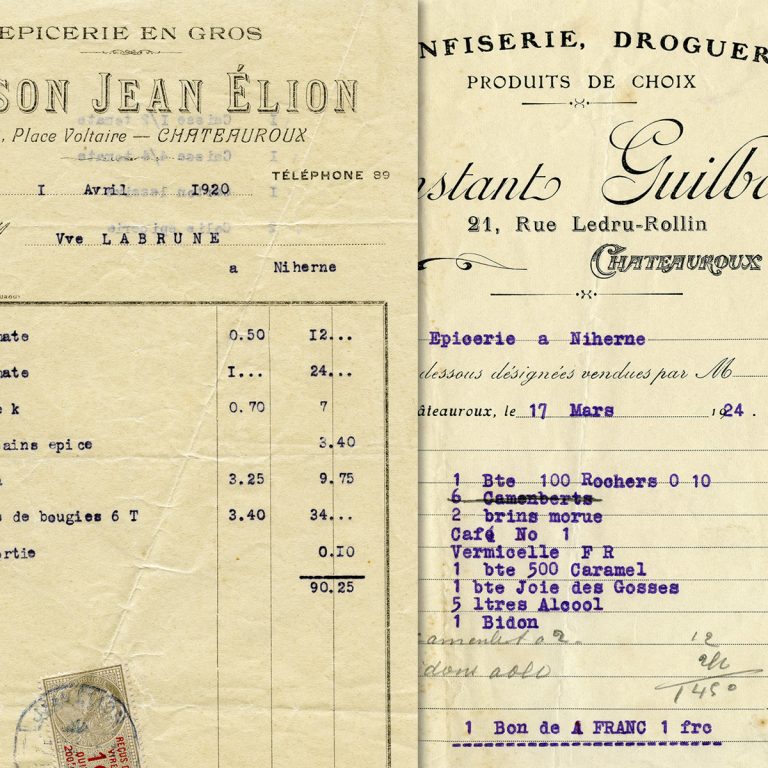 EPICERIE EN GROS
SON JEAN ÉLION
, Place Voltaire — CHATEAUROUX
TÉLÉPHONE 89
I Avril 1920
Vve LABRUNE
a Niherne
mate 0.50 I2...
mate I... 24...
k 0.70 7
ains epice 3.40
3.25 9.75
s de bougies 6 T 3.40 34...
ortie 0.I0
90.25
NFISERIE, DROGUER
PRODUITS DE CHOIX
nstant Guilb
21, Rue Ledru-Rollin
CHATEAUROUX
Epicerie a Niherne
dessous désignées vendues par M
âteauroux, le 17 Mars 1924.
1 Bte 100 Rochers 0 10
6 Camenberts
2 brins morue
Café No 1
Vermicelle F R
1 bte 500 Caramel
1 bte Joie des Gosses
5 ltres Alcool
1 Bidon
12
1 Bon de A FRANC 1 frc